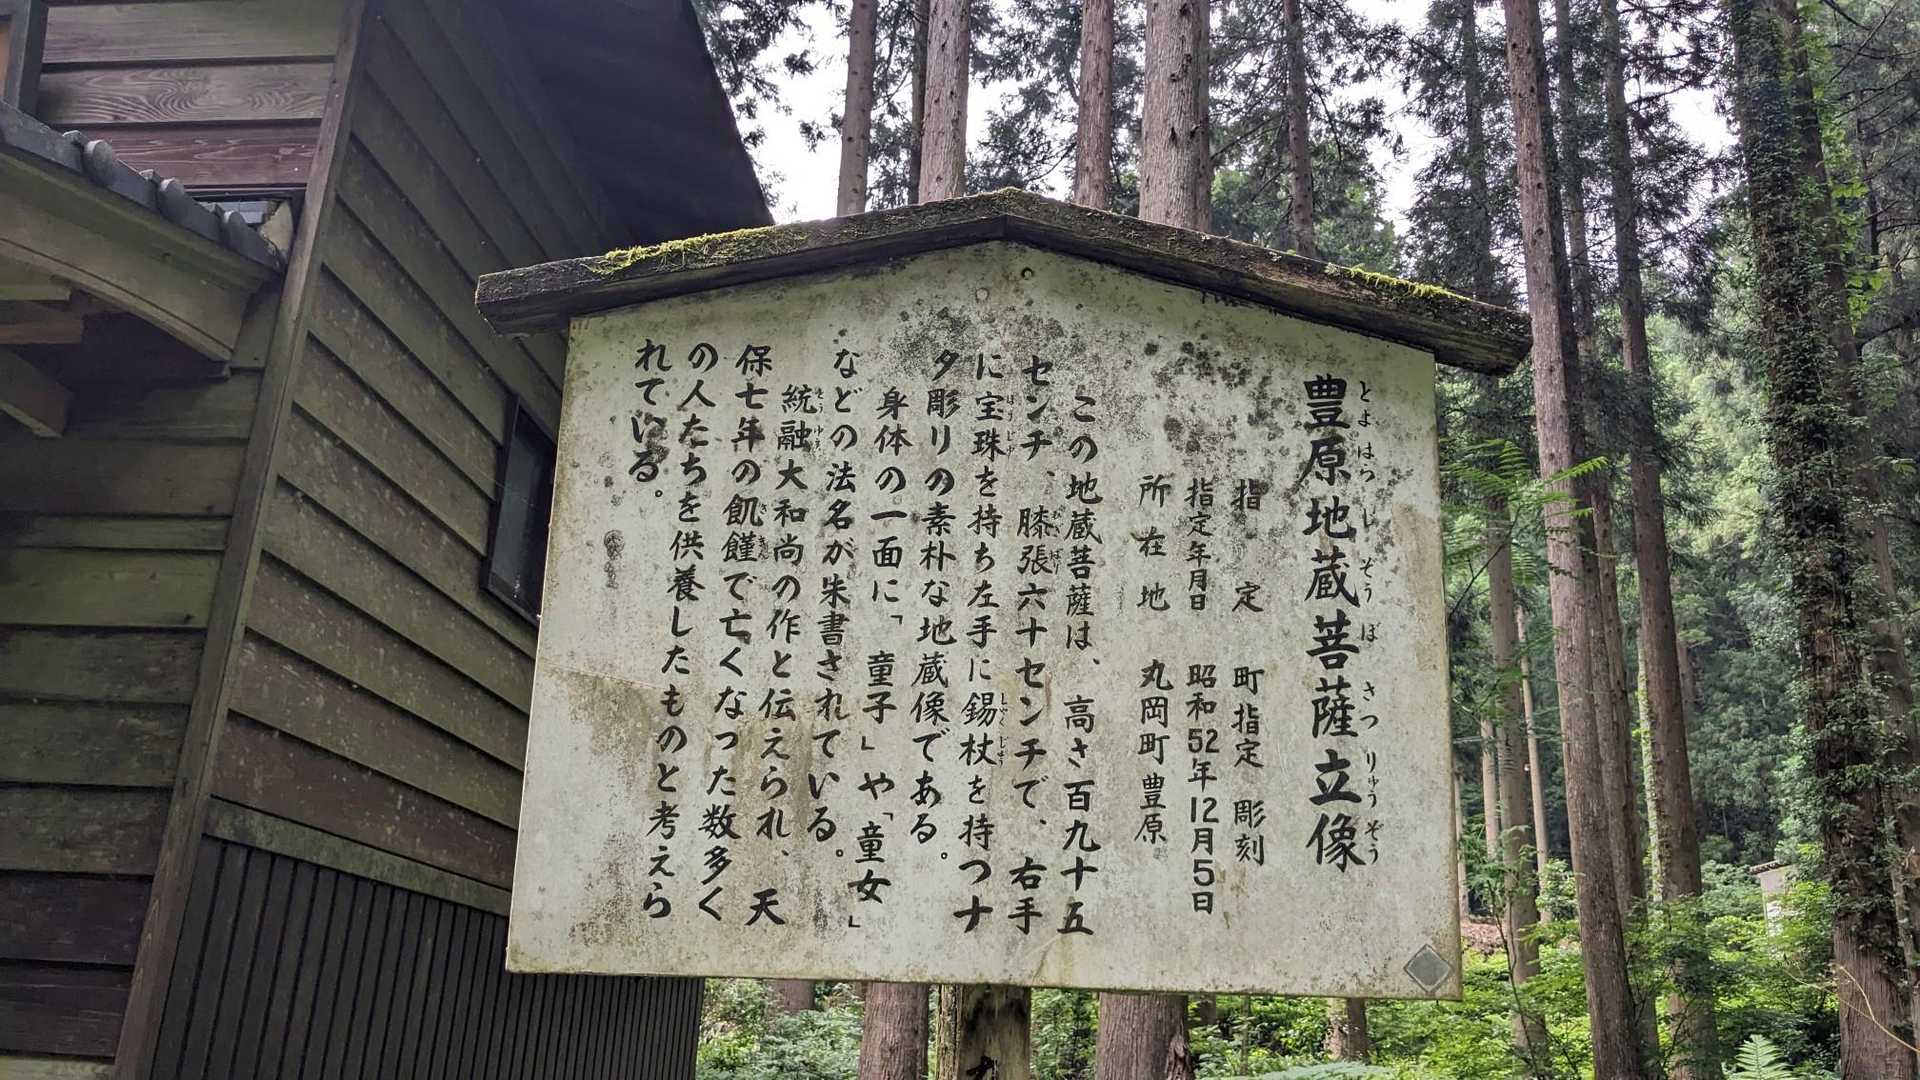 豊原地蔵菩薩立像
とよはらじぞうぼさつりゅうぞう
指定 町指定 彫刻
指定年月日 昭和52年12月5日
所在地 丸岡町豊原
この地蔵菩薩は、高さ百九十五
センチ、膝張六十センチで、右手
に宝珠を持ち左手に錫杖を持つナ
タ彫リの素朴な地蔵像である。
身体の一面に「童子」や「童女」
などの法名が朱書されている。
統融大和尚の作と伝えられ、天
保七年の飢饉で亡くなった数多く
の人たちを供養したものと考えら
れている。